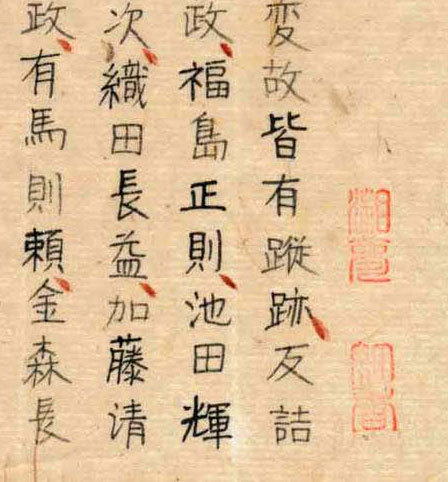 変故皆有蹤跡反詰
政福島正則池田輝
次織田長益加藤清
政有馬則頼金森長